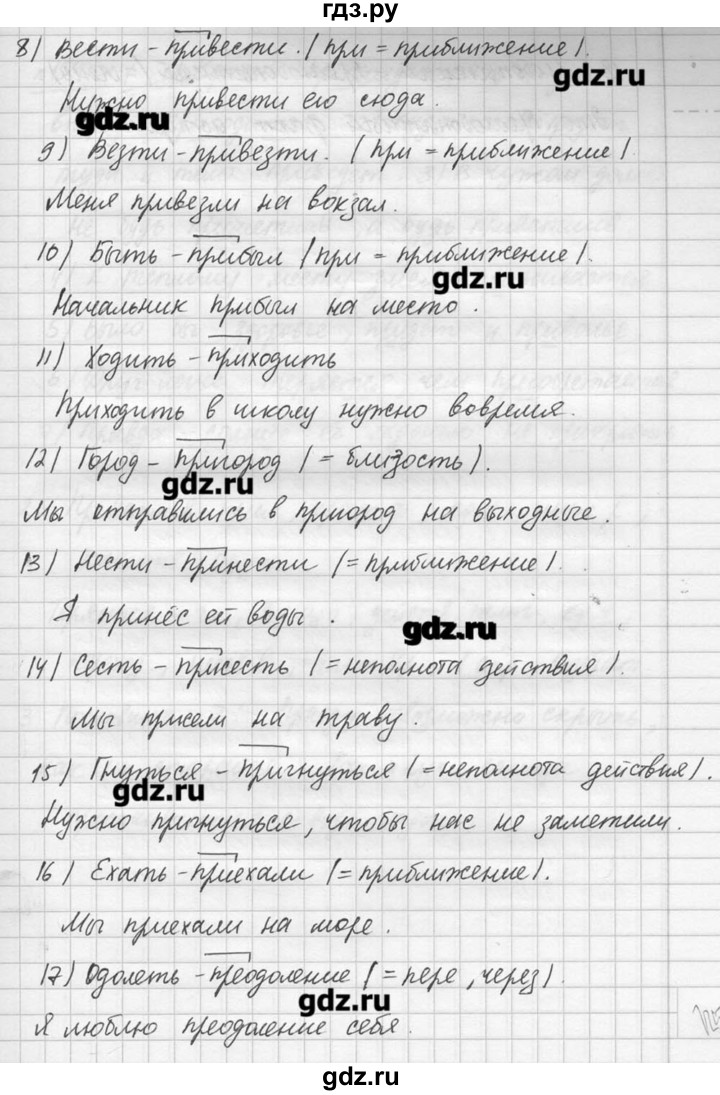 гдз.ру
8) Вести - привести. (при = приближение).
gdz.ru
Нужно привести его сюда.
gdz.ru
9) Везти - привезти. (при = приближение).
Меня привезли на вокзал.
10) Быть - прибыл (при = приближение).
gdz.ru
Начальник прибыл на место.
11) Ходить - приходить
Приходить в школу нужно вовремя.
12) Город - пригород (= близость).
gdz.ru
Мы отправились в пригород на выходные.
13) Нести - принести (= приближение).
Я принёс ей воды.
gdz.ru
14) Сесть - присесть (= неполнота действия).
Мы присели на траву.
15) Гнуться - пригнуться (= неполнота действия).
gdz.ru
Нужно пригнуться, чтобы нас не заметили.
16) Ехать - приехали (= приближение).
Мы приехали на море.
17) Одолеть - преодоление (= пере, через).
gdz.ru
Я люблю преодоление себя.
gdz.ru